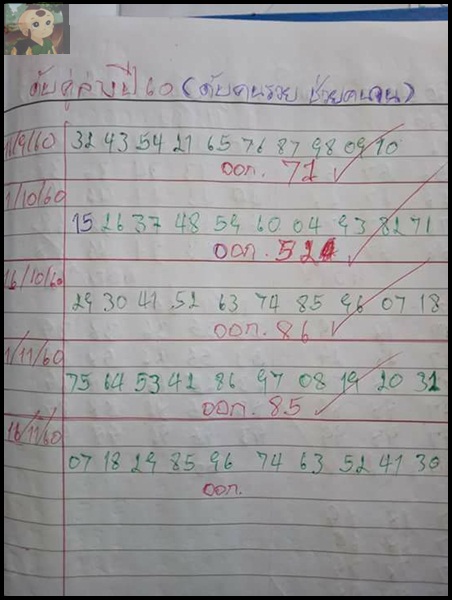 ดับคู่ล่างปี 60 (ดับคนรวย ช่วยคนจน)
1/9/60 32 43 54 21 65 76 87 98 09 10
ออก. 72 ✓
1/10/60
15 26 37 48 59 60 04 93 82 71
ออก. 52 ✓
16/10/60
29 30 41 52 63 74 85 96 07 18
ออก. 86 ✓
1/11/60
75 64 53 42 86 97 08 19 20 31
ออก. 85 ✓
16/11/60
07 18 29 85 96 74 63 52 41 30
ออก.